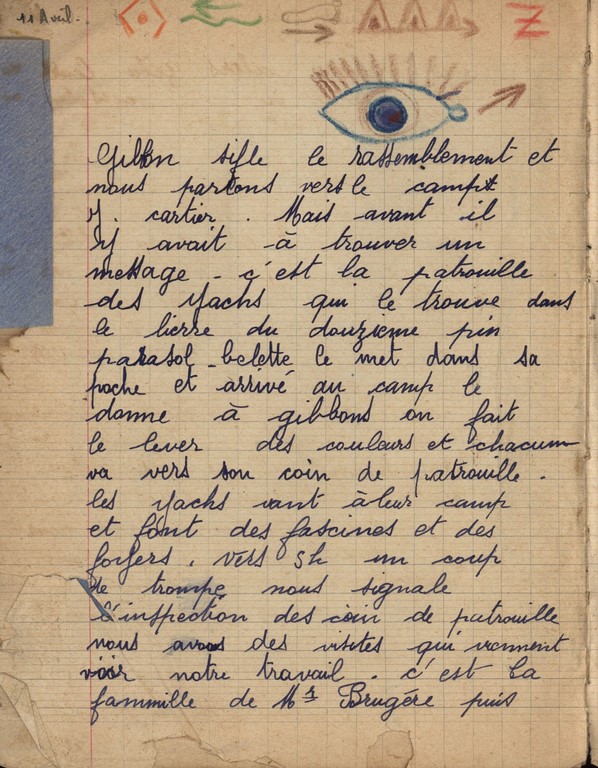 11 Avril.
Gibbon sifle le rassemblement et
nous partons vers le camp
J. cartier. Mais avant il
y avait à trouver un
message - c'est la patrouille
des yachs qui le trouve dans
le lierre du douzieme pin
parasol - belette le met dans sa
poche et arrivé au camp le
donne à gibbons on fait
le lever des couleurs et chacun
va vers son coin de patrouille.
les yachs vont à leur camp
et font des fascines et des
foyers. vers 5h un coup
de trompe nous signale
l'inspection des coin de patrouille
nous avons des visites qui viennent
voir notre travail. c'est la
fammille de Mr Brugére puis